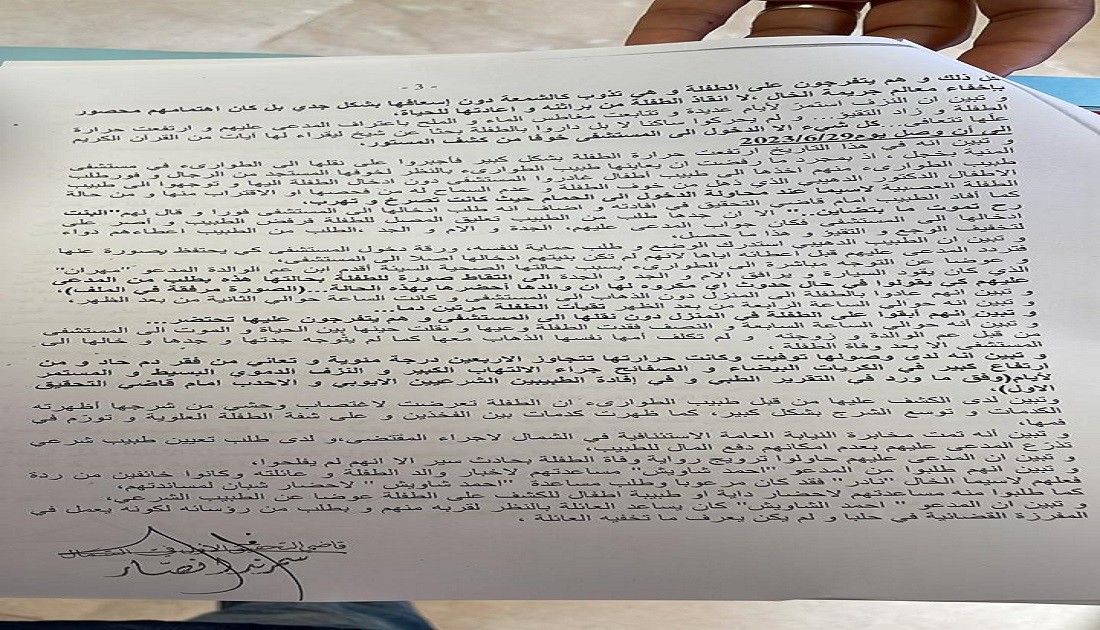 - 3 -
كل ذلك و هم يتفرجون على الطفلة و هي تذوب كالشمعة دون إسعافها بشكل جدي بل كان اهتمامهم محصور
بإخفاء معالم جريمة الخال لا انقاذ الطفلة من براثنه و اعادتها للحياة.
و تبين ان النزف استمر لأيام عديدة و تتابعت مغاطس الماء و الملح باعتراف المدعى عليهم و ارتفعت حرارة
الطفلة و زاد التقيؤ... و لم يحركو ساكنا لا بل داروا بالطفلة بحثا عن شيخ ليقراء لها ايات من القران الكريم
علها تتعافى... كل شيء الا الدخول الى المستشفى خوفا من كشف المستور.
الى أن وصل يوم 2023/6/29
و تبين انه في هذا التاريخ ارتفعت حرارة الطفلة بشكل كبير فأجبروا على نقلها الى الطوارىء في مستشفى
المنية بخجل، اذ بمجرد ما رفضت ان يعاينها طبيب الطوارىء بالنظر لخوفها المستجد من الرجال، فور طلب
طبيب الطوارىء منهم اخذها الى طبيب اطفال غادروا المستشفى دون ادخال الطفلة اليها و توجهوا الى طبيب
الاطفال الدكتور الذهيبي الذي ذهل من خوف الطفلة و عدم السماح له من فحصها او الاقتراب منها و من حالة
الطفلة العصبية لاسيما عند محاولة الدخول الى الحمام حيث كانت تصرخ و تهرب.
كما أفاد الطبيب امام قاضي التحقيق في افادته و اضاف انه طلب ادخالها الى المستشفى فورا و قال لهم "البنت
رح تموت ما بتعملين..." الا ان جدها طلب من الطبيب تعليق المصل للطفلة فرفض الطبيب و أصر على
ادخالها الى المستشفى فكان جواب المدعى عليهم، الجدة و الأم و الجد، الطلب من الطبيب اعطاءهم دواء
لتخفيف الوجع و التقيؤ و هذا ما حصل.
و تبين ان الطبيب الذهيبي استدرك الوضع و طلب حماية لنفسه، ورقة دخول المستشفى كي يحتفظ بصورة عنها
فتردد المدعى عليهم قبل اعطائه اياها لانهم لم تكن بنيتهم ادخالها اصلا الى المستشفى.
و عوضا عن التوجه مباشرة الى الطوارىء بسبب حالتها الصحية السيئة أقدم ابن عم الوالدة المدعو "مهران"
الذي كان يقود السيارة و يرافق الأم و الجد و الجدة الى التقاط صورة للطفلة بحالتها هذه بطلب من المدعى
عليهم كي يقولوا في حال حدوث اي مكروه لها ان والدها احضرها بهذه الحالة...(الصورة مرفقة في الملف)،
و تبين انهم عادوا بالطفلة الى المنزل دون الذهاب الى المستشفى و كانت الساعة حوالي الثانية من بعد الظهر
و تبين انه حوالي الساعة الرابعة من بعد الظهر تقيأت الطفلة مرتين دما...
و تبين انهم أبقوا على الطفلة في المنزل دون نقلها الى المستشفى و هم يتفرجون عليها تحتضر...
و تبين انه حوالي الساعة السابعة و النصف فقدت الطفلة وعيها و نقلت حينها بين الحياة و الموت الى المستشفى
من قبل عم الوالدة و زوجته و لم تكلف امها نفسها الذهاب معها كما لم يتوجه جدتها و جدها و خالها الى
المستشفى الا بعد وفاة الطفلة.
و تبين انه لدى وصولها توفيت وكانت حرارتها تتجاوز الاربعين درجة مئوية و تعاني من فقر دم حاد و من
ارتفاع كبير في الكريات البيضاء و الصفائح جراء الالتهاب الكبير و النزف الدموي البسيط و المستمر
لأيام(وفق ما ورد في التقرير الطبي و في إفادة الطبيبين الشرعيين الايوبي و الاحدب امام قاضي التحقيق
الاول)،
وتبين لدى الكشف عليها من قبل طبيب الطوارىء، ان الطفلة تعرضت لاغتصاب وحشي من شرجها أظهرته
الكدمات و توسع الشرج بشكل كبير، كما ظهرت كدمات بين الفخذين و على شفة الطفلة العلوية و تورم في
فمها،
و تبين أنه تمت مخابرة النيابة العامة الاستئنافية في الشمال لاجراء المقتضى، و لدى طلب تعيين طبيب شرعي
تذرع المدعى عليهم بعدم امكانهم دفع المال للطبيب،
و تبين ان المدعى عليهم حاولوا ترويج رواية وفاة الطفلة بحادث سير الا انهم لم يفلحوا،
و تبين انهم طلبوا من المدعو "احمد شاويش" مساعدتهم لاخبار والد الطفلة و عائلته وكانوا خائفين من ردة
فعلهم لاسيما الخال "نادر" فقد كان مرعوبا وطلب مساعدة "احمد شاويش" لاحضار شبان لمساندتهم،
كما طلبوا منه مساعدتهم لاحضار داية او طبيبة اطفال للكشف على الطفلة عوضا عن الطبيب الشرعي،
و تبين ان المدعو "احمد الشاويش" كان يساعد العائلة بالنظر لقربه منهم و بطلب من رؤسائه لكونه يعمل في
المفرزة القضائية في حلبا و لم يكن يعرف ما تخفيه العائلة.
قاضي التحقيق الاول في الشمال
سمرندا نصار